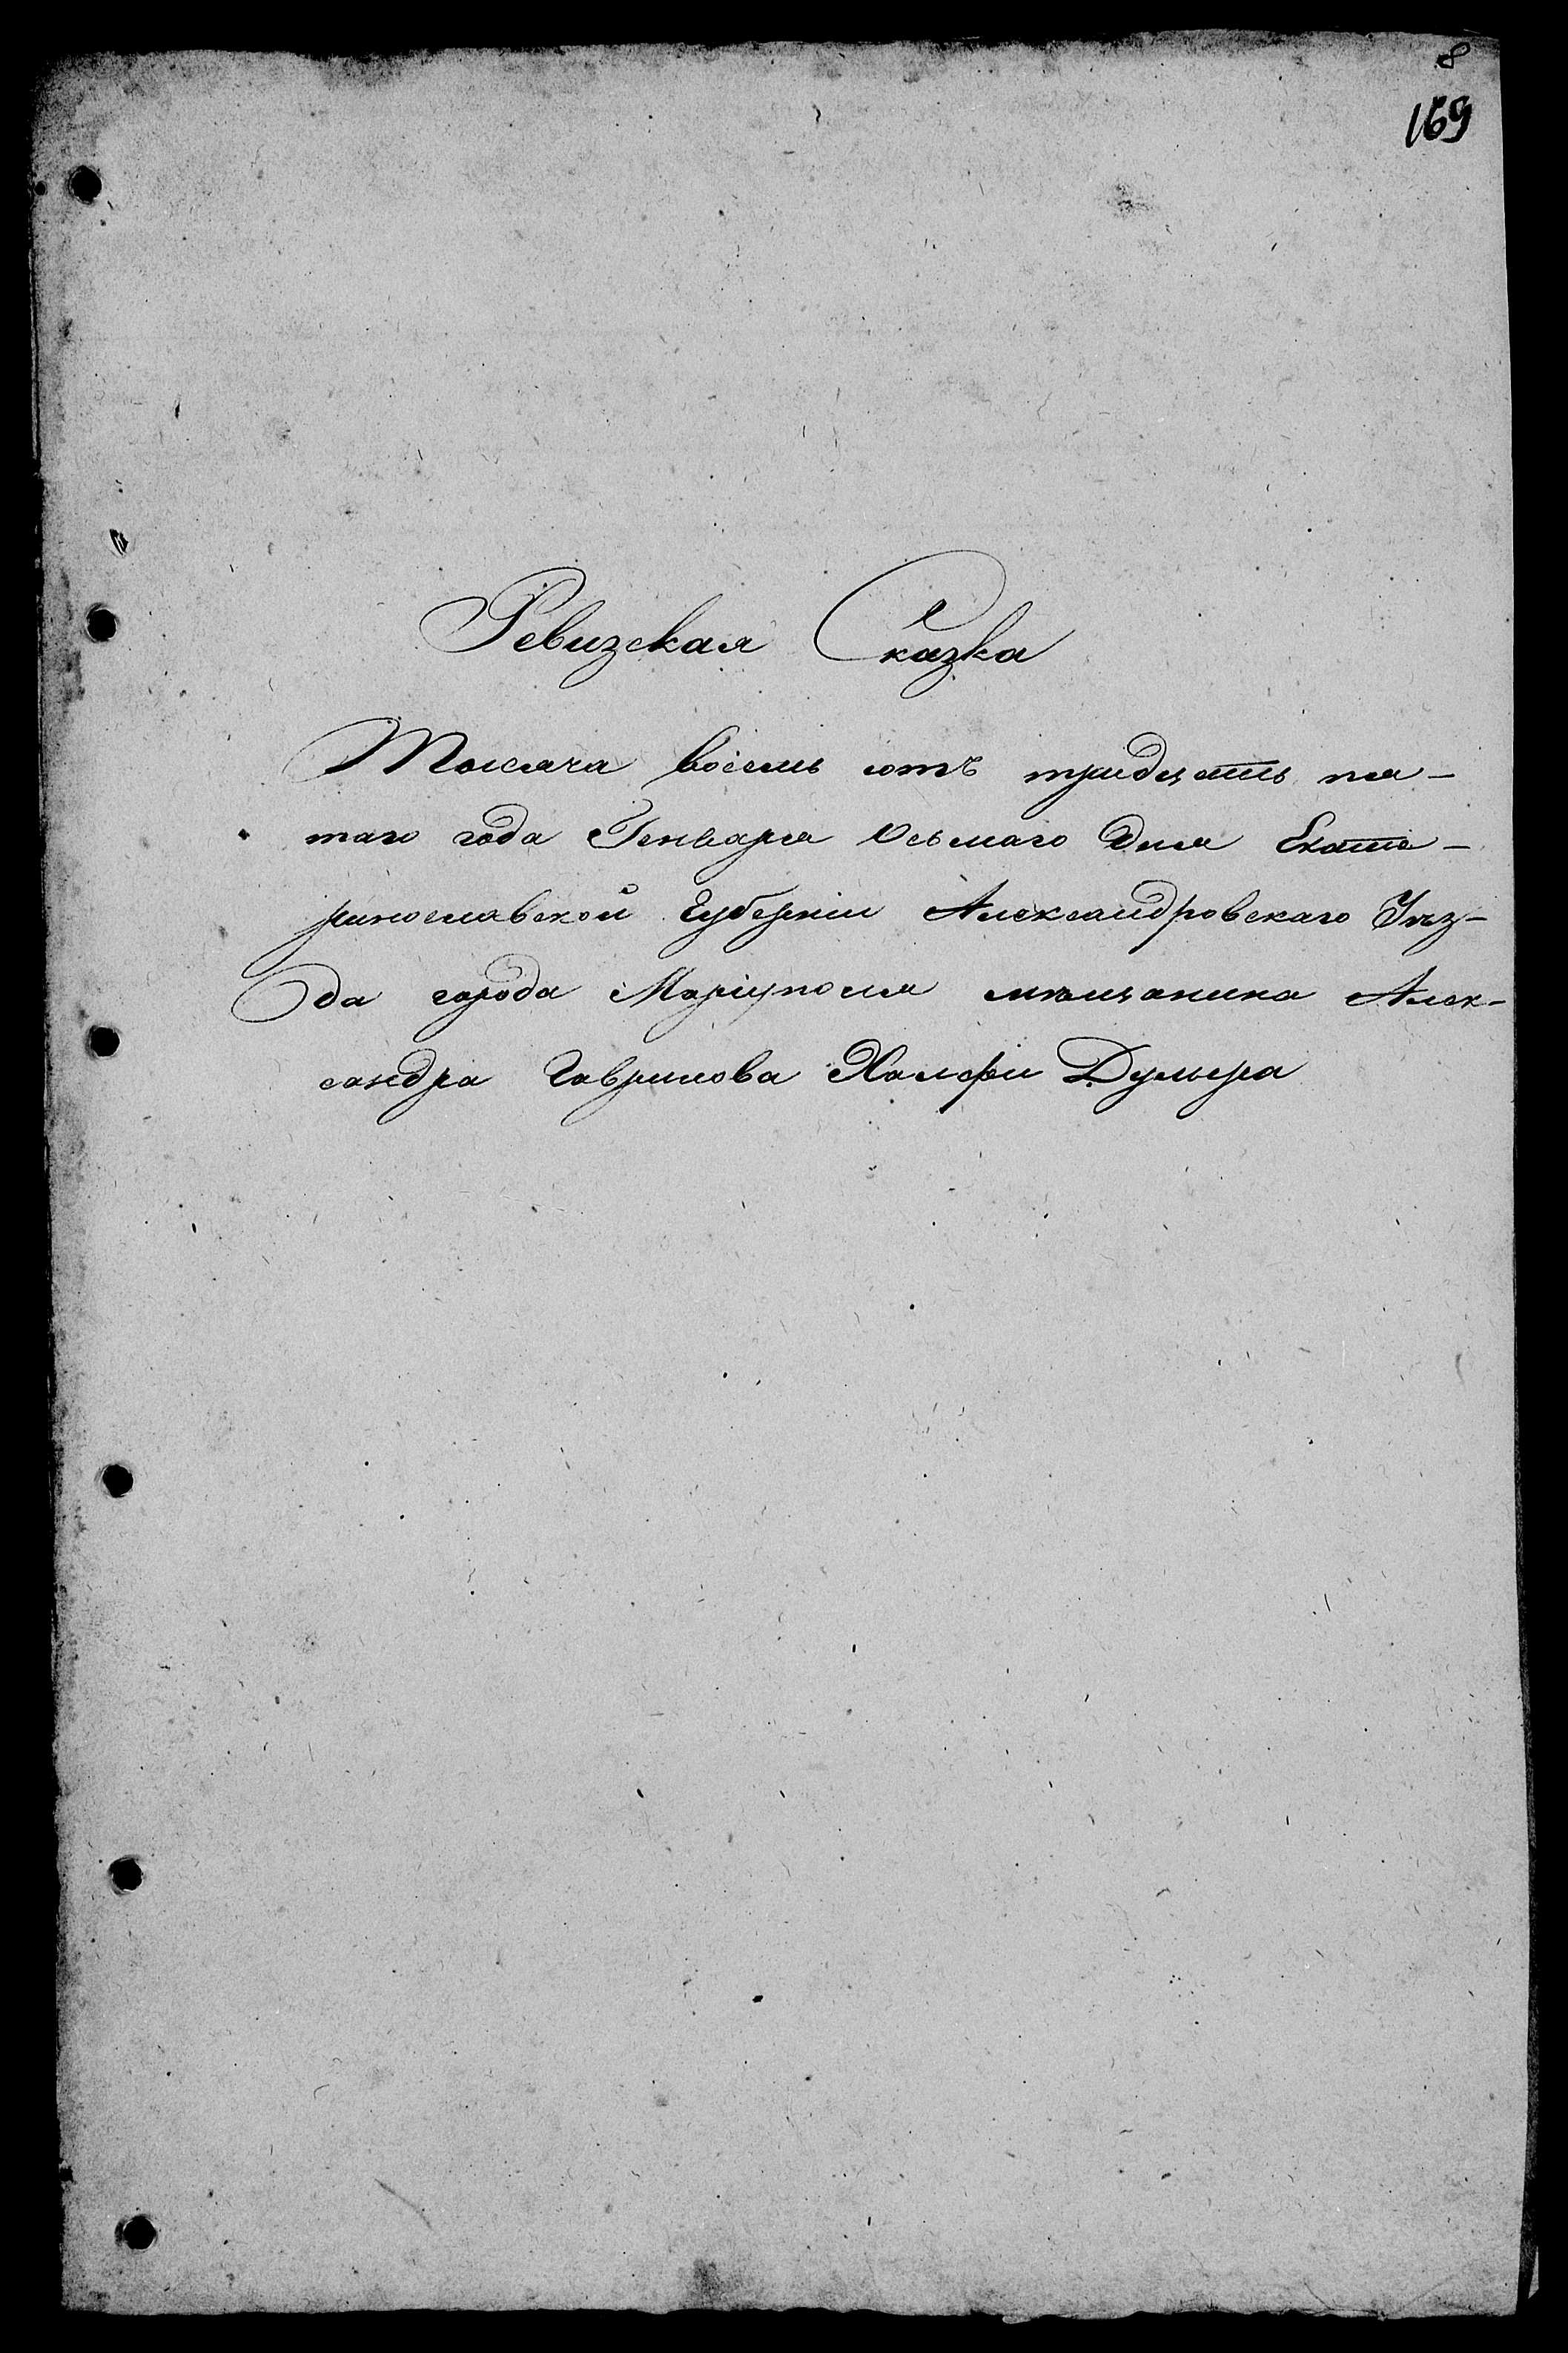 8
169
Ревизская Сказка
Тысяча восемь сотъ тридцать пя-
таго года Генваря Осьмаго дня Екате-
ринославской Губерніи Александровскаго Уѣз-
да города Маріуполя мѣщанина Алек-
сандра Гаврилова Халефи Думера